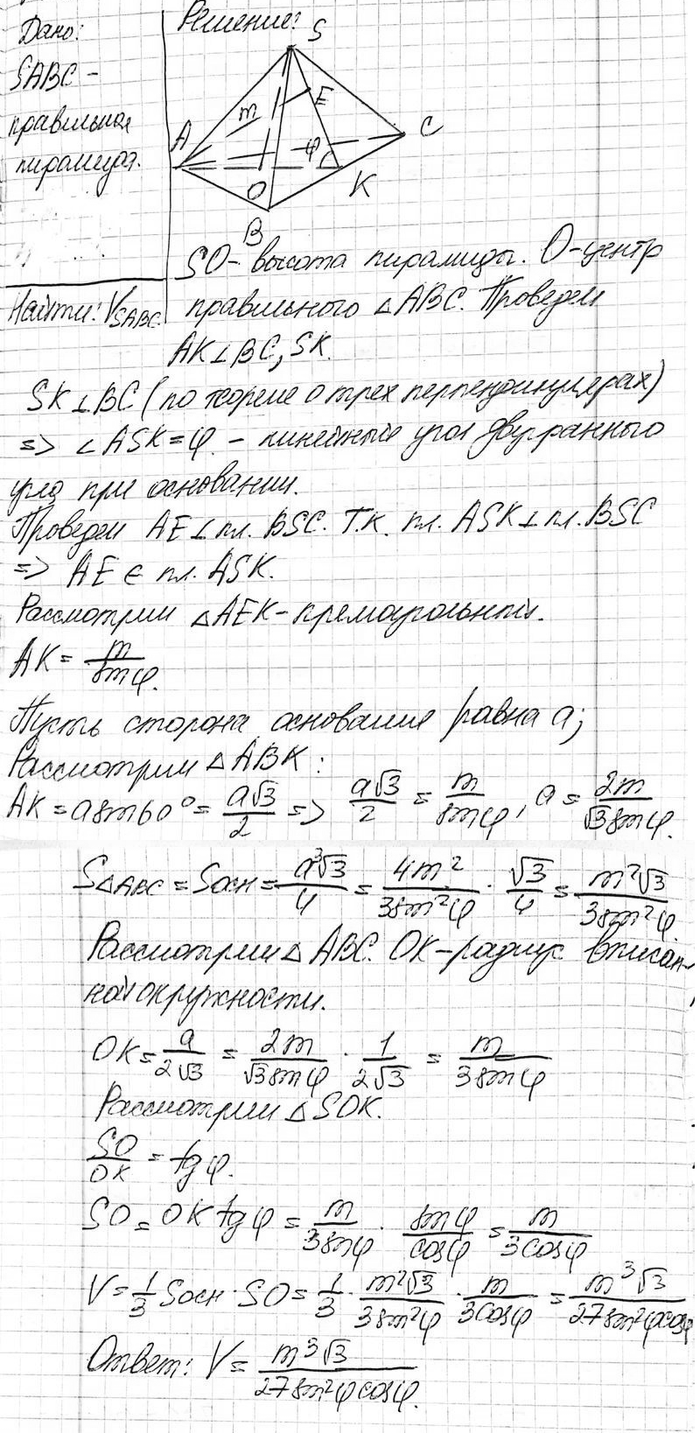 Дано:
SABC -
правильная
пирамида.
Найти: V_SABC
Решение:
S
E
m
A
φ
C
O
K
B
SO - высота пирамиды. O - центр
правильного △ABC. Проведем
AK⊥BC, SK.
SK⊥BC (по теореме о трех перпендикулярах)
=> ∠ASK = φ - линейный угол двугранного
угла при основании.
Проведем AE⊥пл. BSC. Т.к. пл. ASK⊥пл. BSC
=> AE ∈ пл. ASK.
Рассмотрим △AEK - прямоугольный.
AK = m/sinφ.
Пусть сторона основания равна a;
Рассмотрим △ABK:
AK = a sin60° = a√3/2 => a√3/2 = m/sinφ, a = 2m/√3sinφ.
S△ABC = Sосн = a³√3/4 = 4m²/3sin²φ · √3/4 = m²√3/3sin²φ.
Рассмотрим △ABC. OK - радиус вписан-
ной окружности.
OK = a/2√3 = 2m/√3sinφ · 1/2√3 = m/3sinφ
Рассмотрим △SOK.
SO/OK = tgφ.
SO = OK tgφ = m/3sinφ · sinφ/cosφ = m/3cosφ
V = 1/3 Sосн · SO = 1/3 · m²√3/3sin²φ · m/3cosφ = m³√3/27sin²φcosφ
Ответ: V = m³√3/27sin²φcosφ.